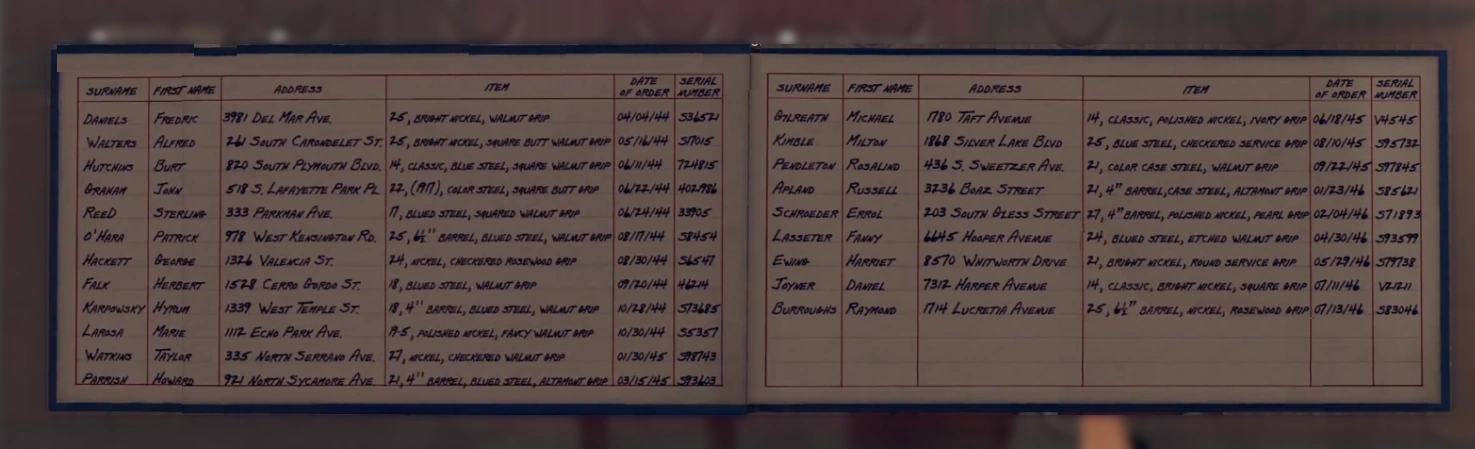 SURNAME FIRST NAME ADDRESS ITEM DATE OF ORDER SERIAL NUMBER
DANIELS FREDRIC 3981 DEL MAR AVE. 25, BRIGHT NICKEL, WALNUT GRIP 04/04/44 S36521
WALTERS ALFRED 261 SOUTH CARONDELET ST. 25, BRIGHT NICKEL, SQUARE BUTT WALNUT GRIP 05/16/44 S17015
HUTCHINS BURT 820 SOUTH PLYMOUTH BLVD. 14, CLASSIC, BLUE STEEL, SQUARE WALNUT GRIP 06/11/44 724815
GRAHAM JOHN 518 S. LAFAYETTE PARK PL 22, (1917), COLOR STEEL, SQUARE BUTT GRIP 06/22/44 402986
REED STERLING 333 PARKMAN AVE. 17, BLUED STEEL, SQUARED WALNUT GRIP 06/24/44 33905
O'HARA PATRICK 978 WEST KENSINGTON RD. 25, 6½" BARREL, BLUED STEEL, WALNUT GRIP 08/17/44 S8454
HACKETT GEORGE 1326 VALENCIA ST. 24, NICKEL, CHECKERED ROSEWOOD GRIP 08/30/44 S6547
FALK HERBERT 1528 CERRO GORDO ST. 18, BLUED STEEL, WALNUT GRIP 09/20/44 46214
KARPOWSKY HYRUM 1339 WEST TEMPLE ST. 18, 4" BARREL, BLUED STEEL, WALNUT GRIP 10/28/44 S73685
LAROSA MARIE 1112 ECHO PARK AVE. 19-5, POLISHED NICKEL, FANCY WALNUT GRIP 10/30/44 S5357
WATKINS TAYLOR 335 NORTH SERRANO AVE. 27, NICKEL, CHECKERED WALNUT GRIP 01/30/45 S98743
PARRISH HOWARD 921 NORTH SYCAMORE AVE 21, 4" BARREL, BLUED STEEL, ALTAMONT GRIP 03/15/45 S93603
SURNAME FIRST NAME ADDRESS ITEM DATE OF ORDER SERIAL NUMBER
GILREATH MICHAEL 1780 TAFT AVENUE 14, CLASSIC, POLISHED NICKEL, IVORY GRIP 06/18/45 V4545
KIMBLE MILTON 1868 SILVER LAKE BLVD 25, BLUE STEEL, CHECKERED SERVICE GRIP 08/10/45 S95732
PENDLETON ROSALIND 436 S. SWEETZER AVE. 21, COLOR CASE STEEL, WALNUT GRIP 09/22/45 S97845
APLAND RUSSELL 3236 BOAZ STREET 21, 4" BARREL, CASE STEEL, ALTAMONT GRIP 01/23/46 S85621
SCHROEDER ERROL 203 SOUTH GLESS STREET 27, 4" BARREL, POLISHED NICKEL, PEARL GRIP 02/04/46 S71893
LASSETER FANNY 6645 HOOPER AVENUE 24, BLUED STEEL, ETCHED WALNUT GRIP 04/30/46 S93599
EWING HARRIET 8570 WHITWORTH DRIVE 21, BRIGHT NICKEL, ROUND SERVICE GRIP 05/29/46 S79738
JOYNER DANIEL 7312 HARPER AVENUE 14, CLASSIC, BRIGHT NICKEL, SQUARE GRIP 07/11/46 V21211
BURROUGHS RAYMOND 1714 LUCRETIA AVENUE 25, 6½" BARREL, NICKEL, ROSEWOOD GRIP 07/13/46 S83046